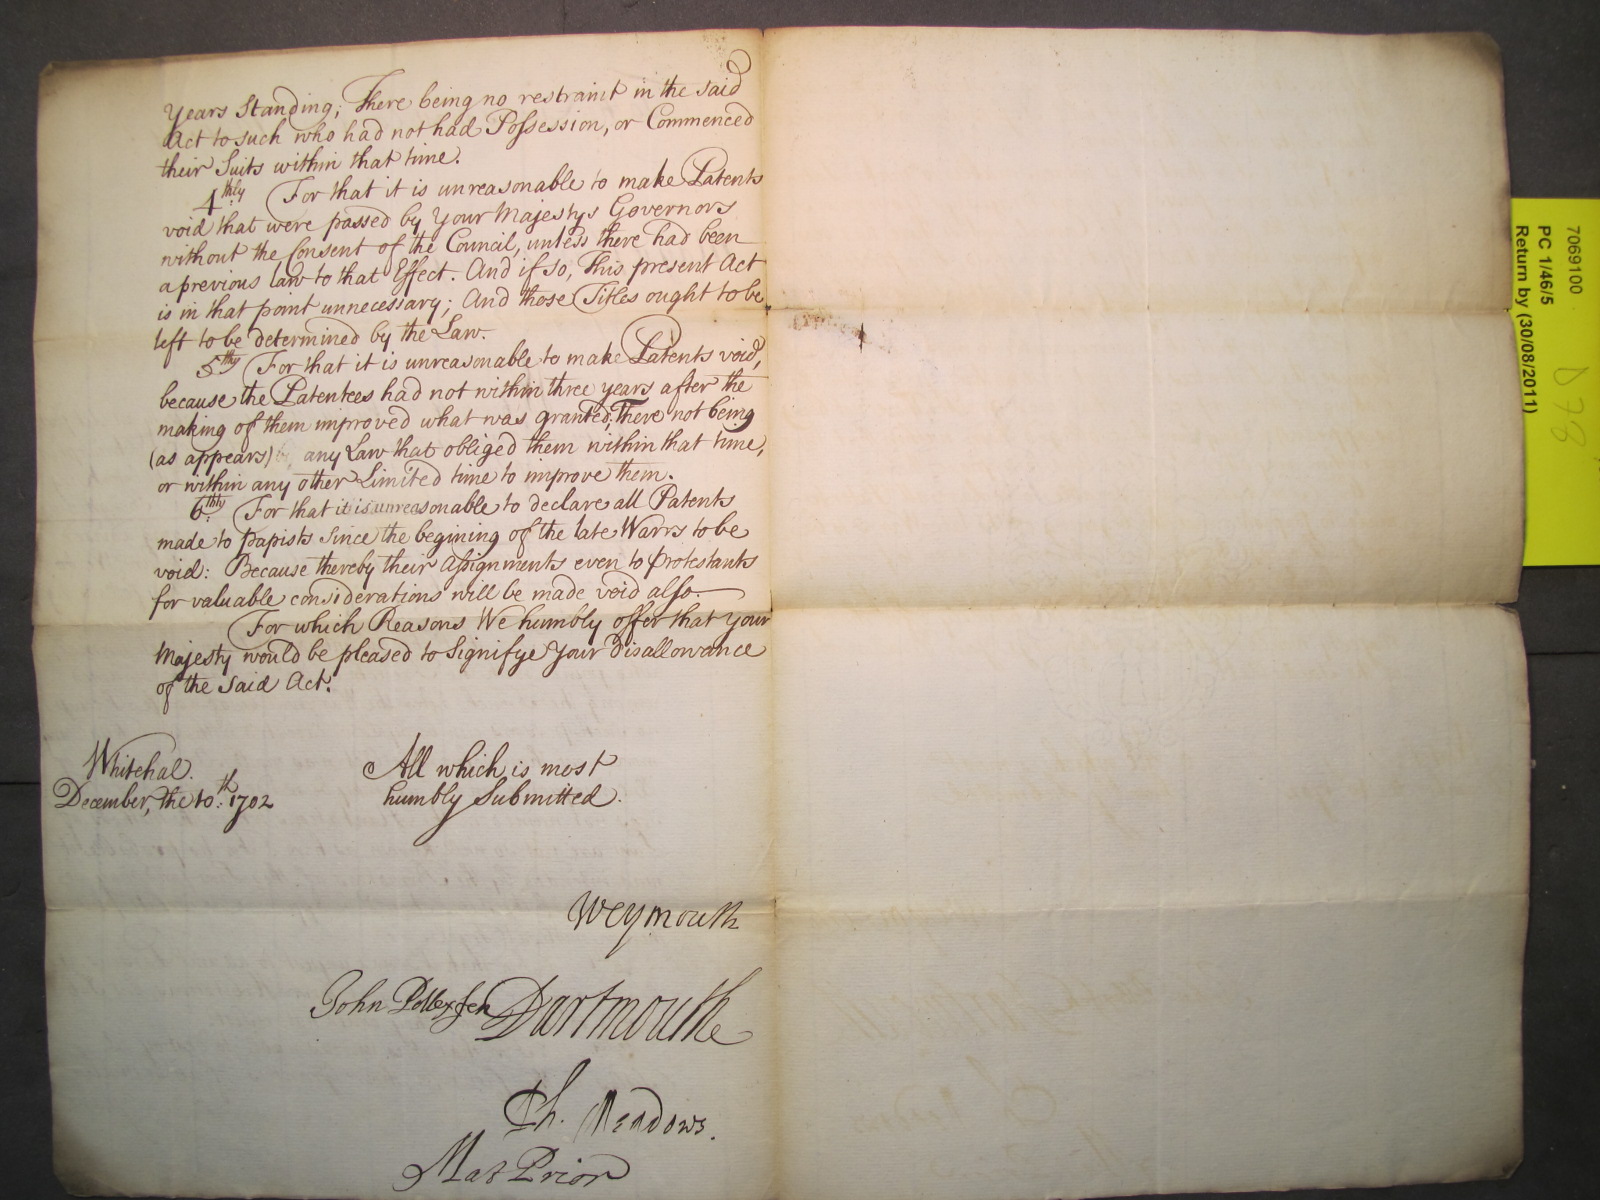 Years Standing; There being no restraint in the said
Act to such who had not had Possession, or Commenced
their Suits within that time.
4thly For that it is unreasonable to make Patents
void that were passed by Your Majestys Governors
without the Consent of the Council, unless there had been
a previous law to that Effect. And if so, This present Act
is in that point unnecessary; And those Titles ought to be
left to be determined by the Law.
5thly For that it is unreasonable to make Patents void,
because the Patentees had not within three years after the
making of them improved what was granted; There not being
(as appears) any Law that obliged them within that time,
or within any other Limited time to improve them.
6thly For that it is unreasonable to declare all Patents
made to papists since the begining of the late Warrs to be
void: Because thereby their Assignments even to protestants
for valuable considerations will be made void also.
For which Reasons We humbly offer that Your
Majesty would be pleased to Signifye Your Disallowance
of the said Act.
Whitehal.
December, the 10th: 1702
All which is most
humbly Submitted.
Weymouth
John Pollexfen Dartmouth
Ph. Meadows.
Mat Prior
7069100
PC 1/46/5
Return by (30/08/2011)
D 78